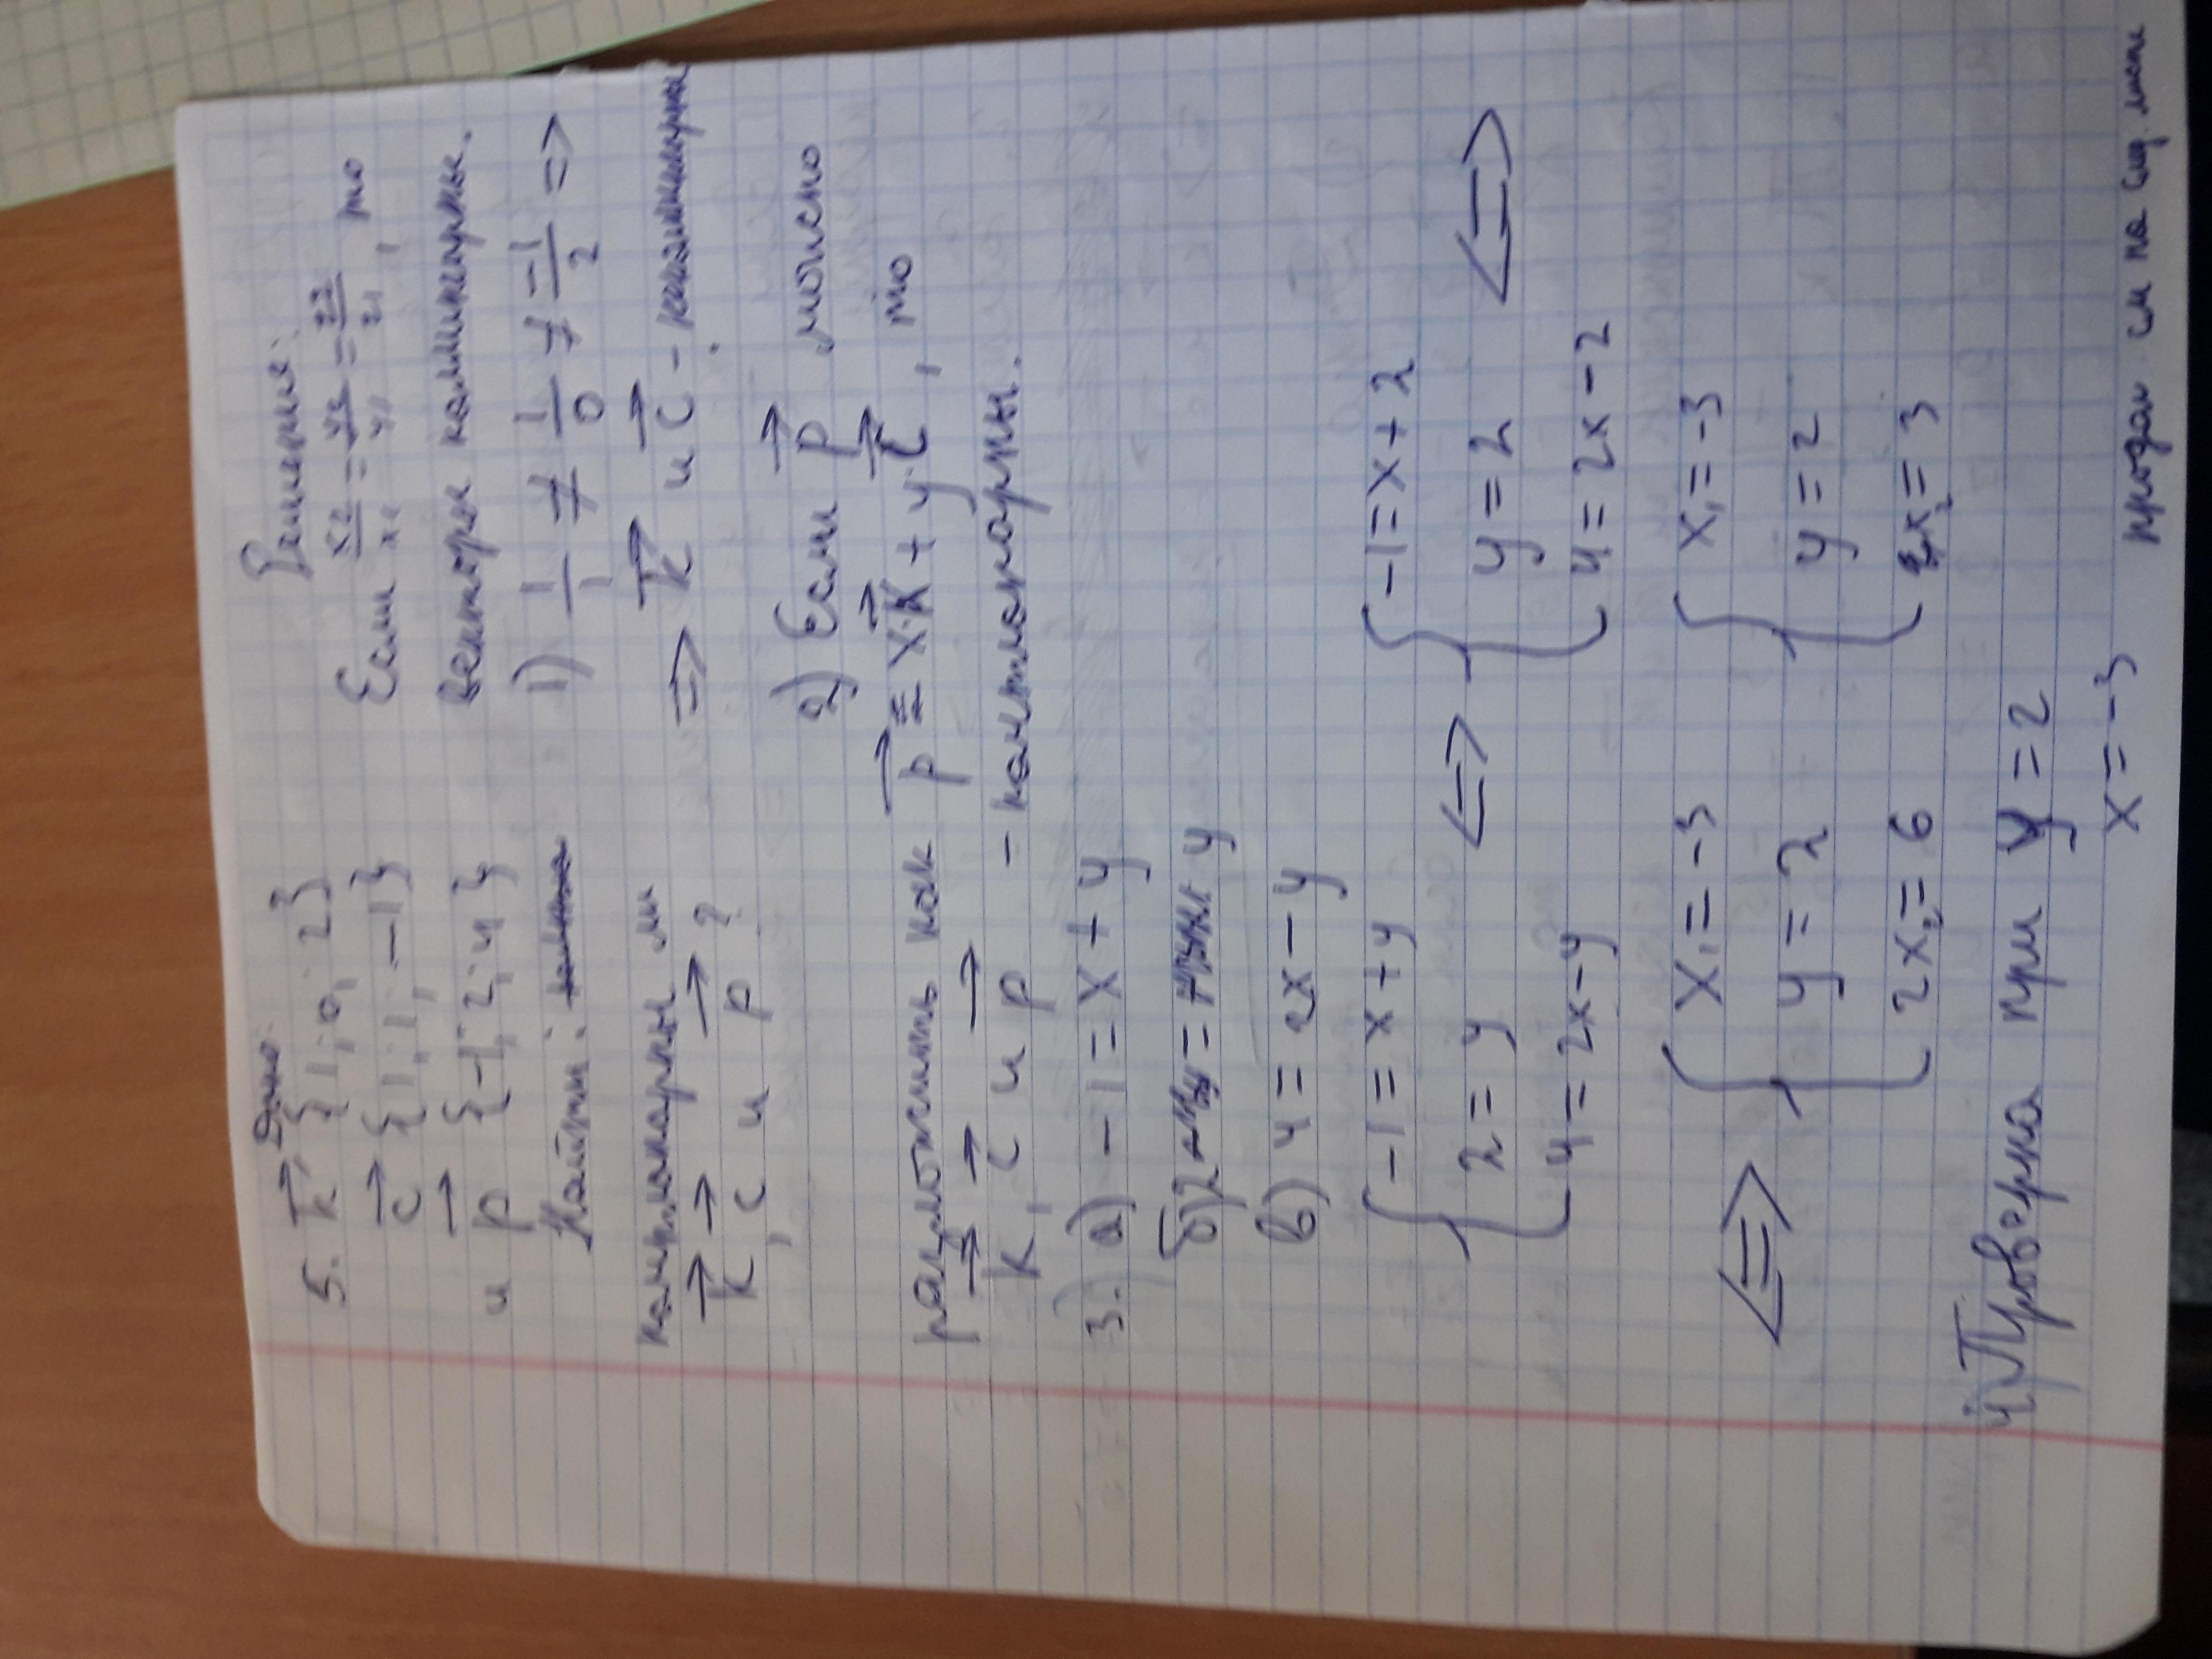 5. Дано:
k⃗ {1; 0; 2}
c⃗ {1; 1; -1}
и p⃗ {-1; 2; 4}
Найти:
компланарны ли
k⃗, c⃗ и p⃗?
Решение:
Если x2/x1 = y2/y1 = z2/z1, то
векторы коллинеарны.
1) 1/1 ≠ 1/0 ≠ -1/2 =>
=> k⃗ и c⃗ -
2) Если p⃗ можно
разложить как p⃗ = x·k⃗ + y·c⃗, то
k⃗, c⃗ и p⃗ - компланарны.
3.) а) -1 = x + y
б) 2 = y
в) 4 = 2x - y
{ -1 = x + y
2 = y
4 = 2x - y
<=> { -1 = x + 2
y = 2
4 = 2x - 2
<=>
<=> { x₁ = -3
y = 2
2x₂ = 6
{ x₁ = -3
y = 2
x₂ = 3
4) Проверка при y = 2
x = -3
продол см на след. листе